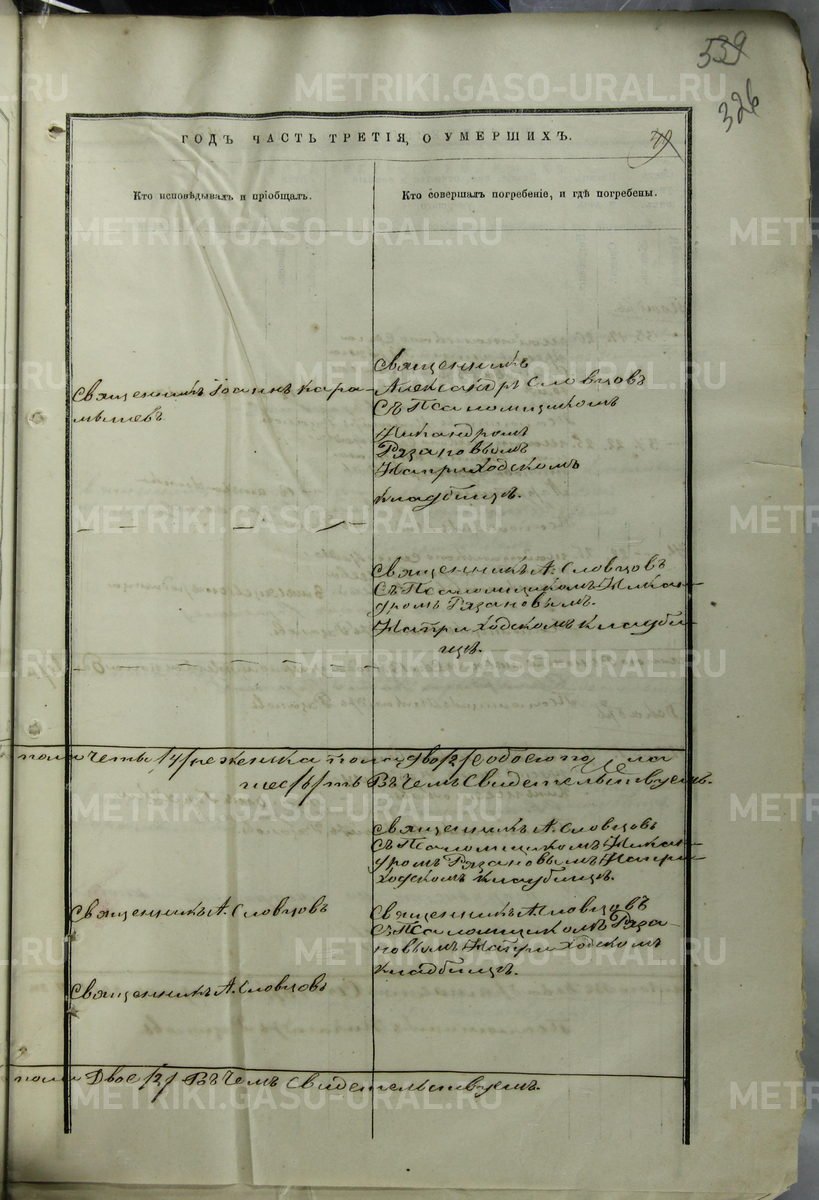 539
326
ГОДЪ ЧАСТЬ ТРЕТІЯ, О УМЕРШИХЪ.
79
Кто исповѣдывалъ и пріобщалъ.
Кто совершалъ погребеніе, и гдѣ погребены.
Священникъ Іоаннъ Кара-
мышевъ
Священникъ
Александръ Словцовъ
Съ Псаломщикомъ
Никандромъ
Рязановымъ
На приходскомъ
кладбищѣ.
Священникъ А. Словцовъ
Съ Псаломщикомъ Никан-
дромъ Рязановымъ.
На приходскомъ кладби-
щѣ.
пола четы /4/ женска пола двое /2/ обоего пола
шес /6/ ть Въ чемъ Свидетельствуемъ.
Священникъ А. Словцовъ
Съ Псаломщикомъ Никан-
дромъ Рязановымъ На при-
ходскомъ кладбищѣ.
Священникъ А. Словцовъ
Священникъ А. Словцовъ
Съ Псаломщикомъ Ряза-
новымъ На приходскомъ
кладбищѣ.
Священникъ А. Словцовъ
пола Двое /2/ Въ чемъ Свидетельствуемъ.
METRIKI.GASO-URAL.RU